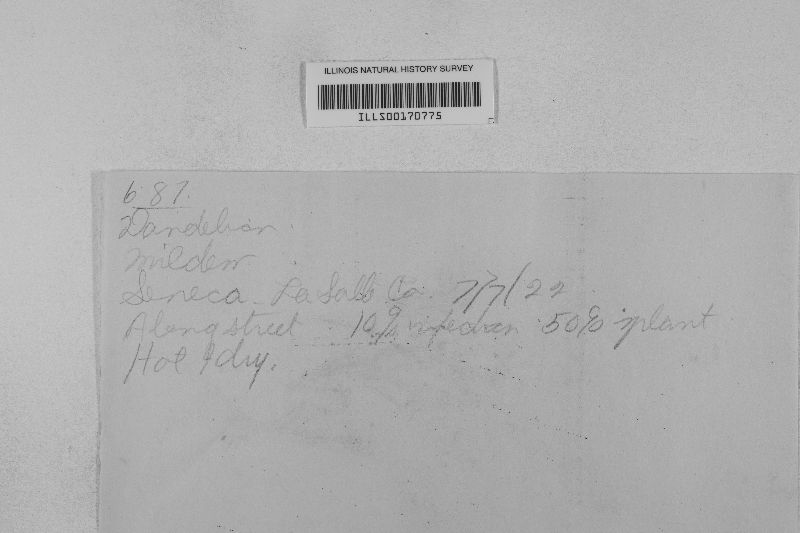 ILLINOIS NATURAL HISTORY SURVEY
ILLS00170775
687.
Dandelion.
mildew
Seneca - La Salle Co. 7/7/22
Along street 10% infection 50% plant
Hot & dry.